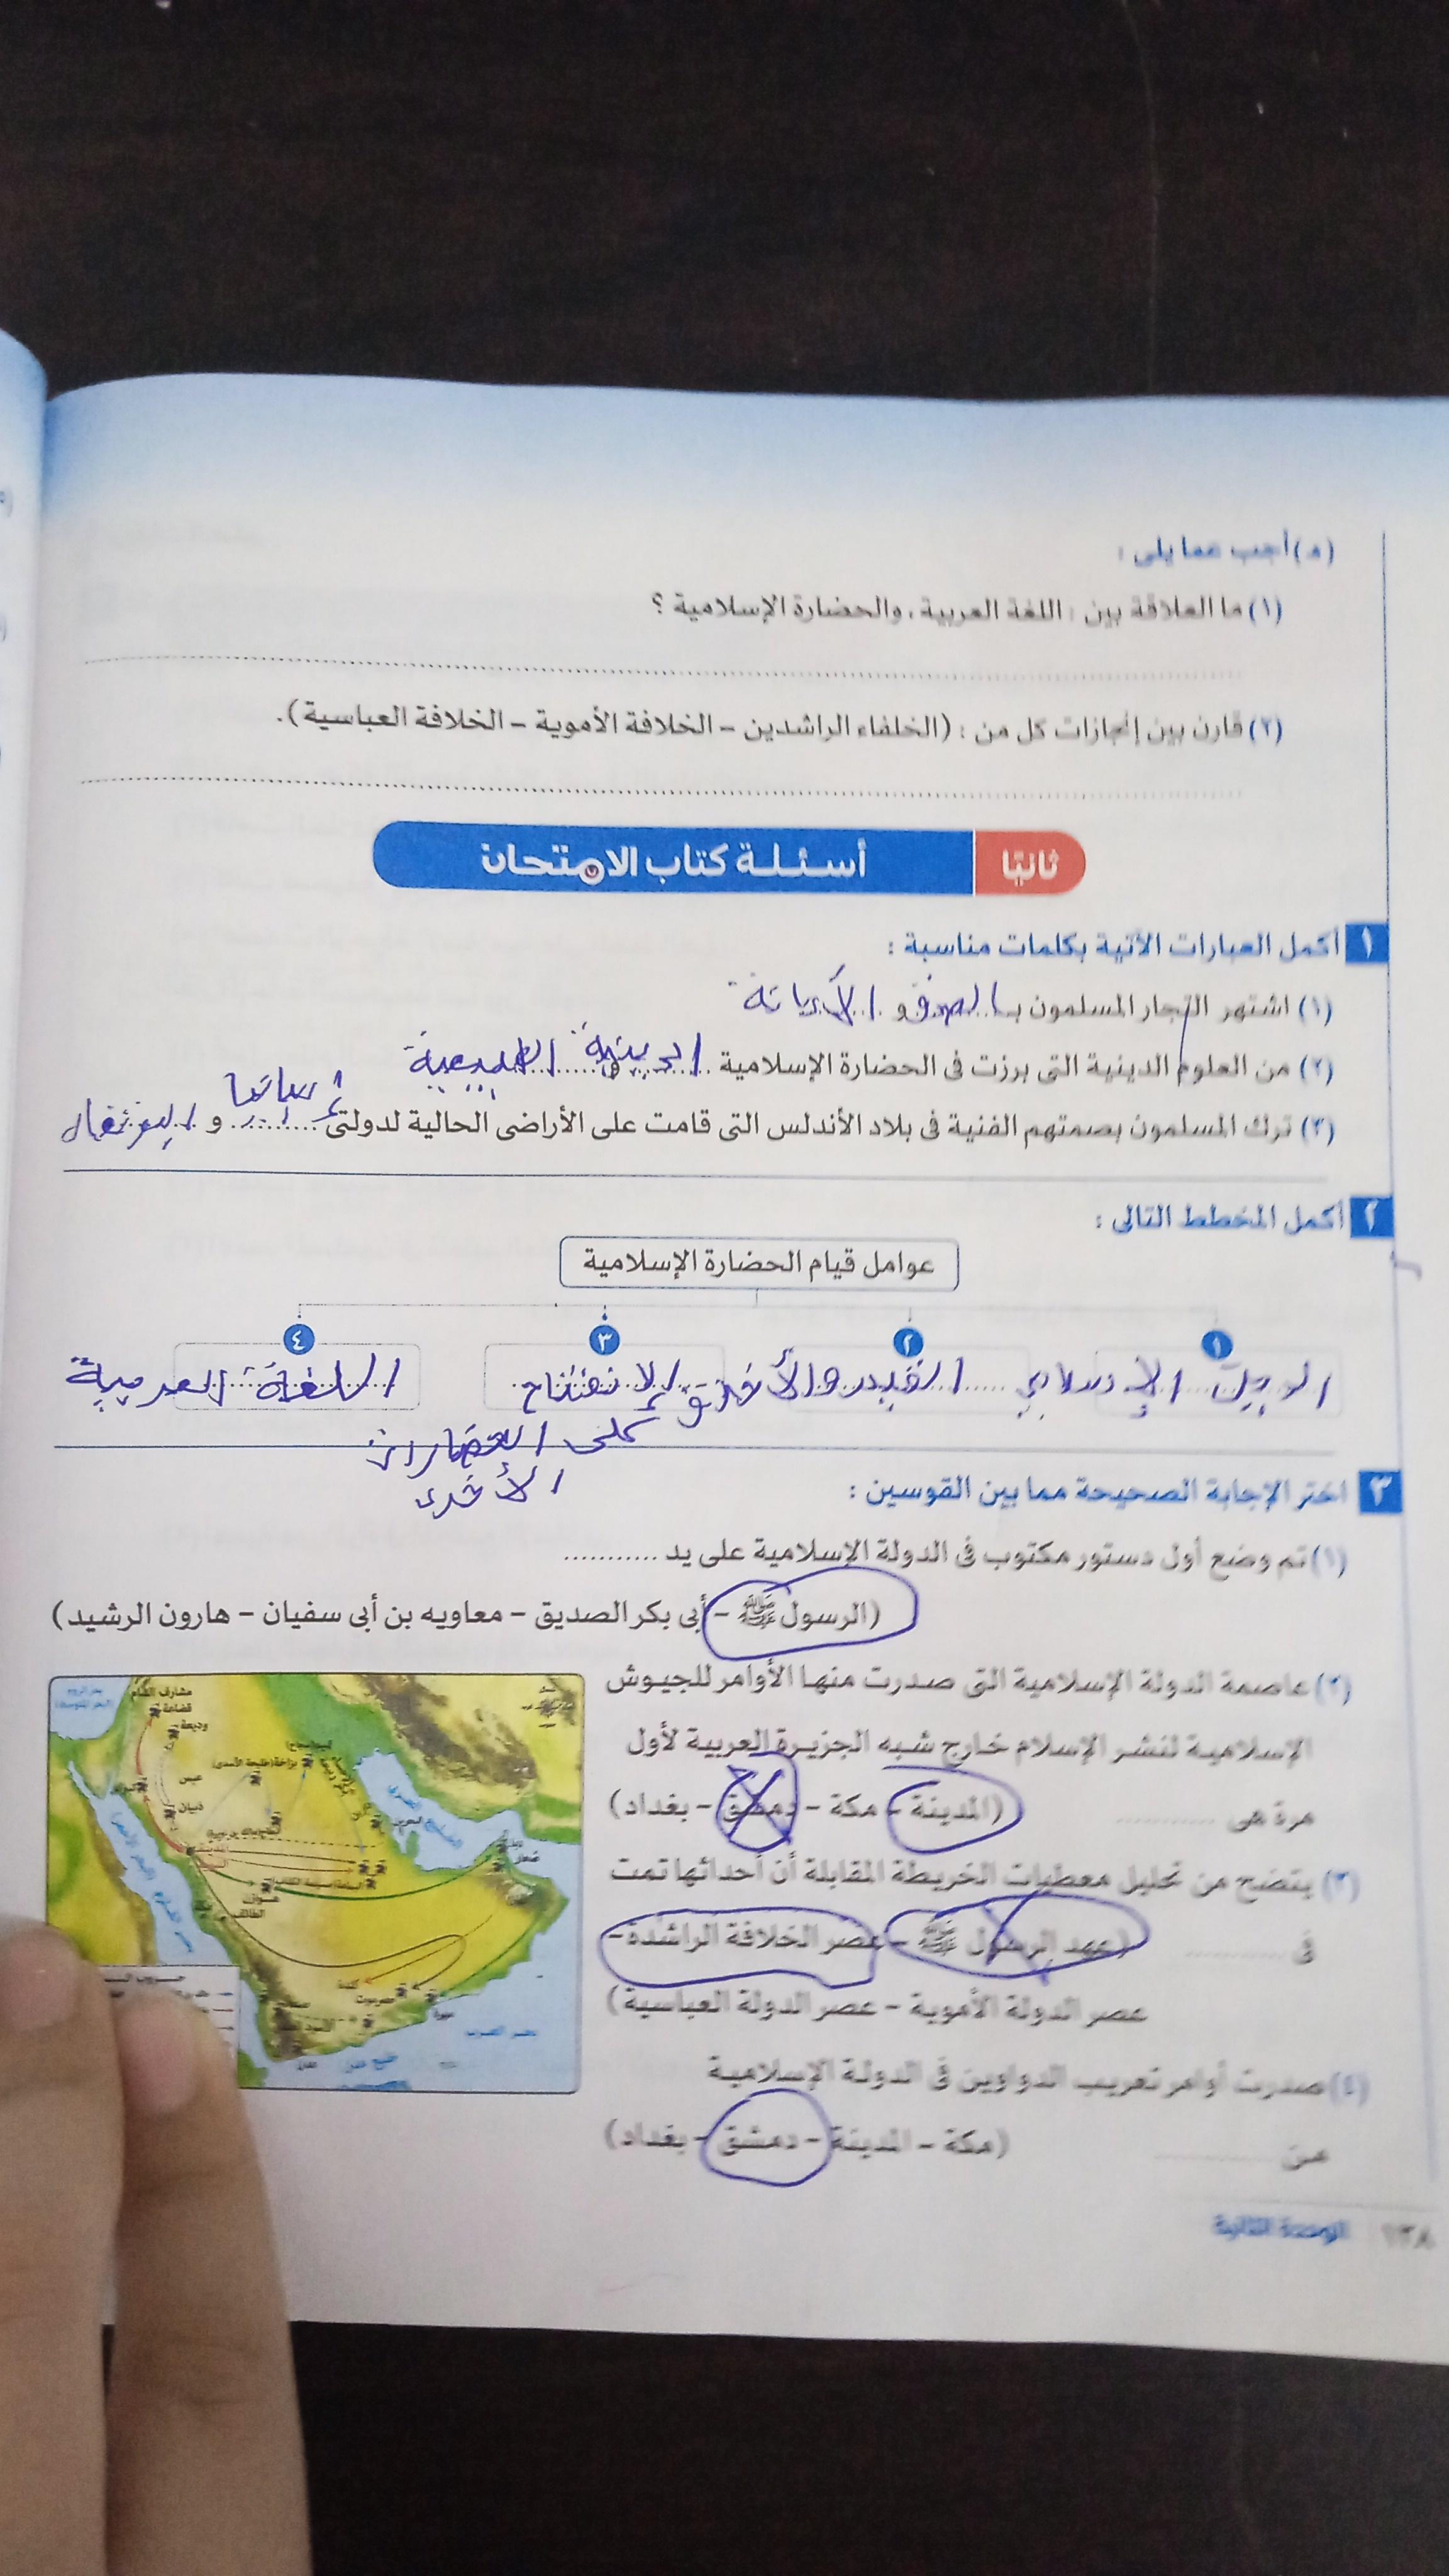 (هـ) أجب عما يلى :
(١) ما العلاقة بين : اللغة العربية ، والحضارة الإسلامية ؟
(٢) قارن بين إنجازات كل من : (الخلفاء الراشدين – الخلافة الأموية – الخلافة العباسية).
ثانيًا أسئلة كتاب الامتحان
١ أكمل العبارات الآتية بكلمات مناسبة :
(١) اشتهر التجار المسلمون بـ الصدق و الأمانة
(٢) من العلوم الدينية التى برزت فى الحضارة الإسلامية الدينية و الطبيعية
(٣) ترك المسلمون بصمتهم الفنية فى بلاد الأندلس التى قامت على الأراضى الحالية لدولتى إسبانيا و البرتغال
٢ أكمل المخطط التالى :
عوامل قيام الحضارة الإسلامية
١ ٢ ٣ ٤
الدين الإسلامي
القيم والأخلاق
الانفتاح على الحضارات الأخرى
اللغة العربية
٣ اختر الإجابة الصحيحة مما بين القوسين :
(١) تم وضع أول دستور مكتوب فى الدولة الإسلامية على يد ...........
(الرسول ﷺ – أبى بكر الصديق – معاويه بن أبى سفيان – هارون الرشيد)
(٢) عاصمة الدولة الإسلامية التى صدرت منها الأوامر للجيوش
الإسلامية لنشر الإسلام خارج شبه الجزيرة العربية لأول
مرة هى ........... (المدينة – مكة – دمشق – بغداد)
(٣) يتضح من تحليل معطيات الخريطة المقابلة أن أحداثها تمت
فى ........... (عهد الرسول ﷺ – عصر الخلافة الراشدة –
عصر الدولة الأموية – عصر الدولة العباسية)
(٤) صدرت أوامر تعريب الدواوين فى الدولة الإسلامية
من ........... (مكة – المدينة – دمشق – بغداد)
مشارف الشام
قضاعة
وديعة
عبس
ذبيان
البحرين
هوازن
الطائف
كندة
حضرموت
مهرة
عدن
خليج عدن
بحر العرب
١٣٨ الوحدة الثانية